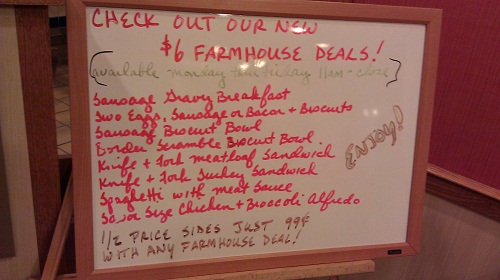 CHECK OUT OUR NEW
$6 FARMHOUSE DEALS!
(available monday thru friday 11AM - close)
Sausage Gravy Breakfast
Two Eggs, Sausage or Bacon + Biscuits
Sausage Biscuit Bowl
Border Scramble Biscuit Bowl
Knife + Fork meatloaf Sandwich
Knife + Fork Turkey Sandwich
Spaghetti with meat Sauce
Savor Size Chicken + Broccoli Alfredo
ENJOY!
1/2 PRICE SIDES JUST 99¢
WITH ANY FARMHOUSE DEAL!